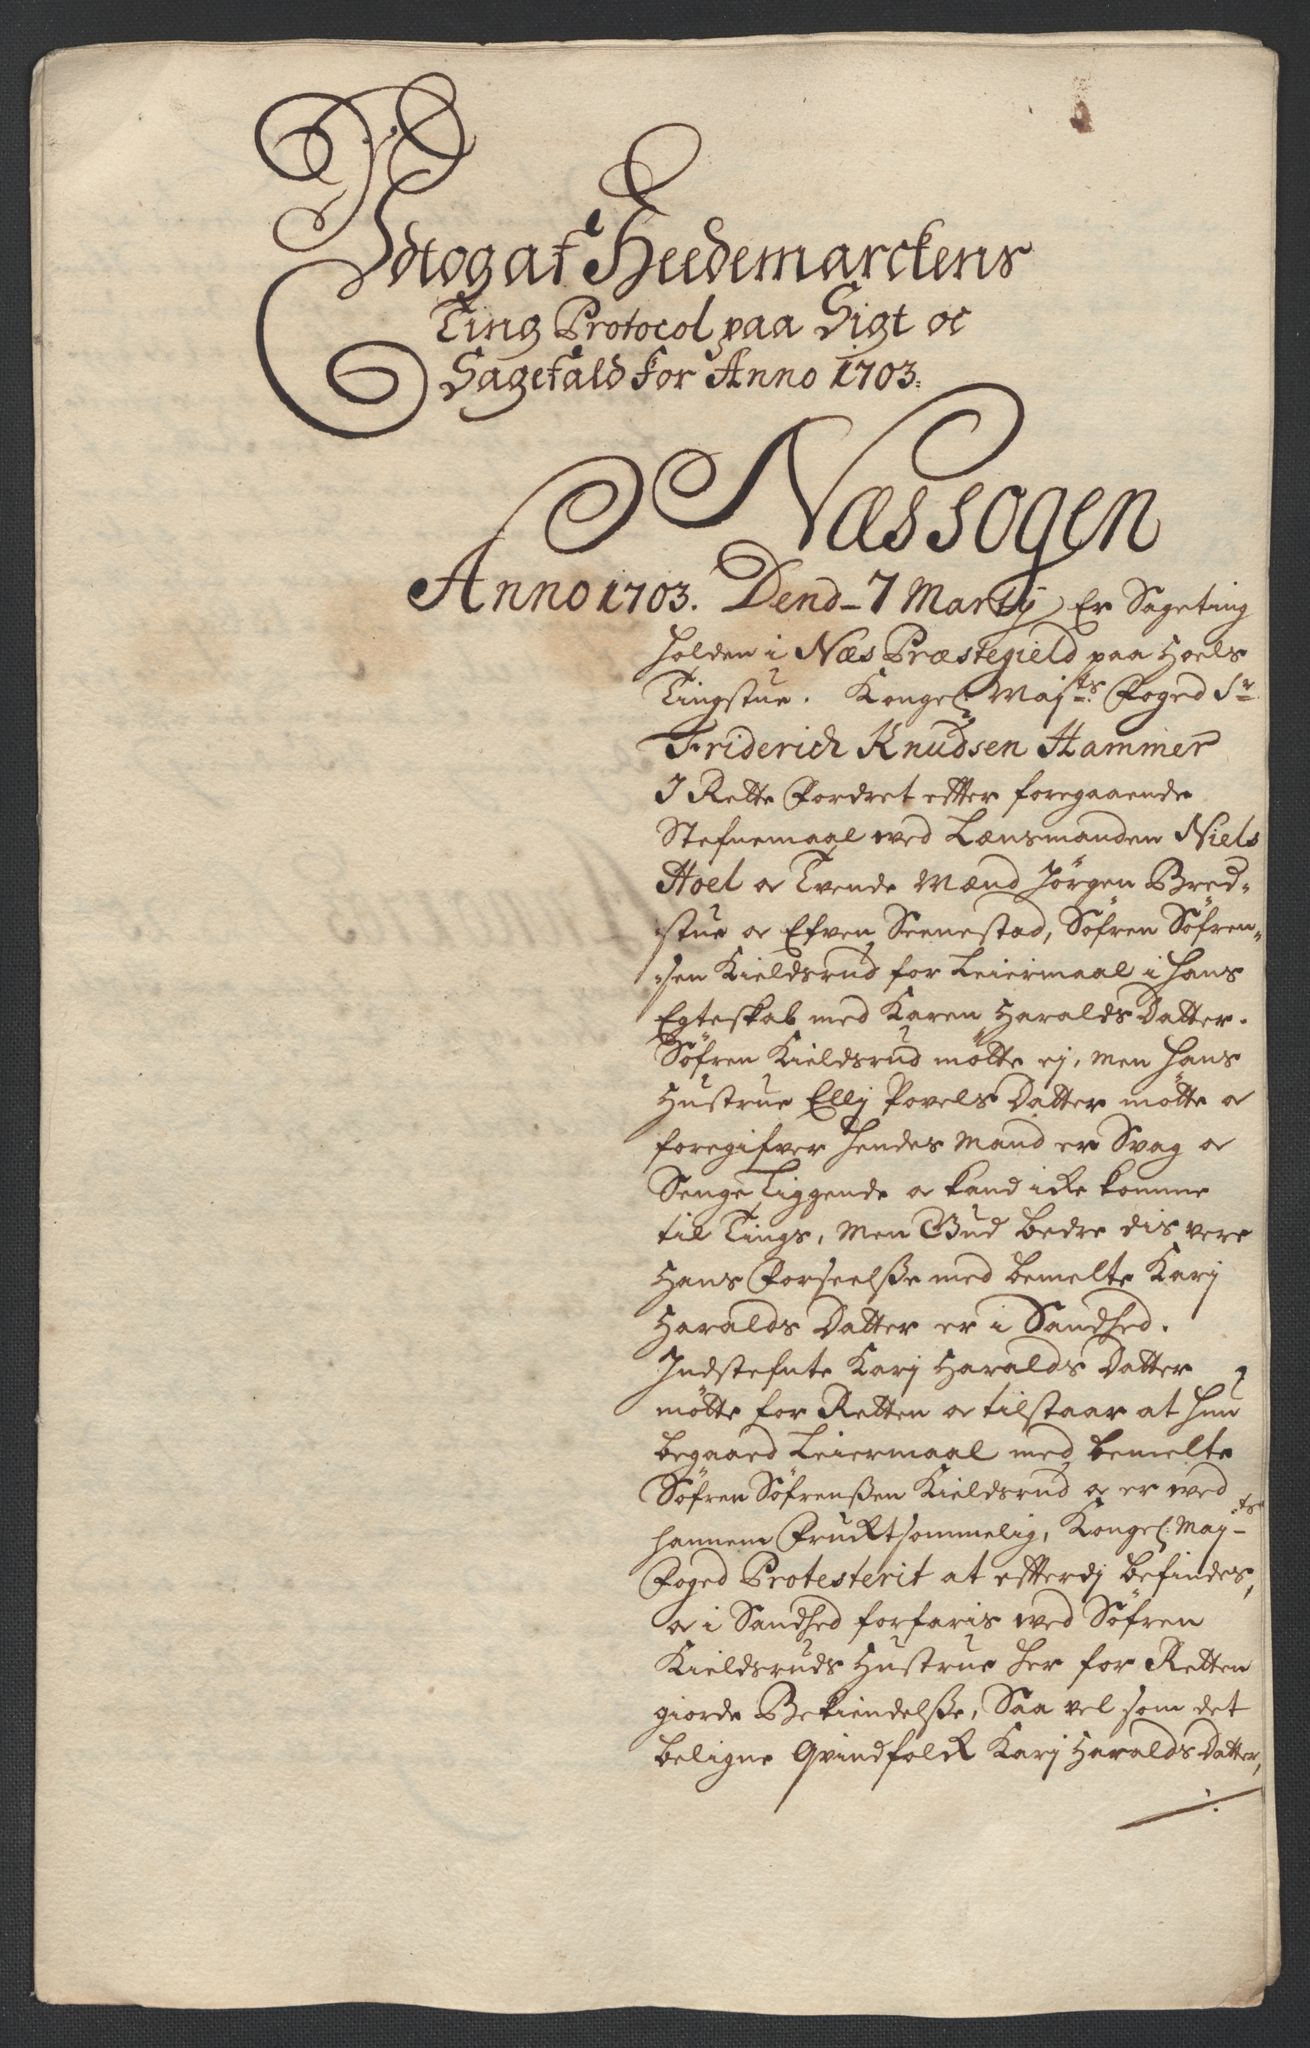 Udtog af Heedemarckens
Ting Protocol paa Sigt oc
Sagefald for Anno 1703.
Næssogen
Anno 1703. Dend 7 Martij Er Sageting
holden i Næs Præstegield paa Hoels
Tingstue. Kongel: Maj:ts Foged Sr
Friderich Knudsen Hammer
J Rette fordret efter foregaaende
Stefnemaal ved Lænsmanden Niels
Hoel oc Tvende Mænd Jörgen Bred-
stue oc Efven Seenestad, Söfren Söfren-
sen Kieldsrud for Leiermaal i hans
Egteskab med Karen Haralds Datter.
Söfren Kieldsrud mötte ej, men hans
Hustrue Ellj Povels Datter mötte oc
foregifver hendes Mand er Svag oc
Senge Liggende oc kand icke komme
til Tings, Men Gud bedre dis vere
Hans Forseelße med bemelte Karj
Haralds Datter er i Sandhed.
Jndstefnte Karj Haralds Datter
mötte for Retten oc tilstaar at hun
begaaed Leiermaal med bemelte
Söfren Söfrenßen Kieldsrud oc er ved
hannem Frucktsommelig, Kongel: Maj:ts
Foged Protesterit at efterdj befindes,
oc i Sandhed forfaris ved Söfren
Kieldsruds Hustrue her for Retten
giorde Bekiendelße, Saa vel som det
beligne Qvindfolck Karj Haralds Datter,